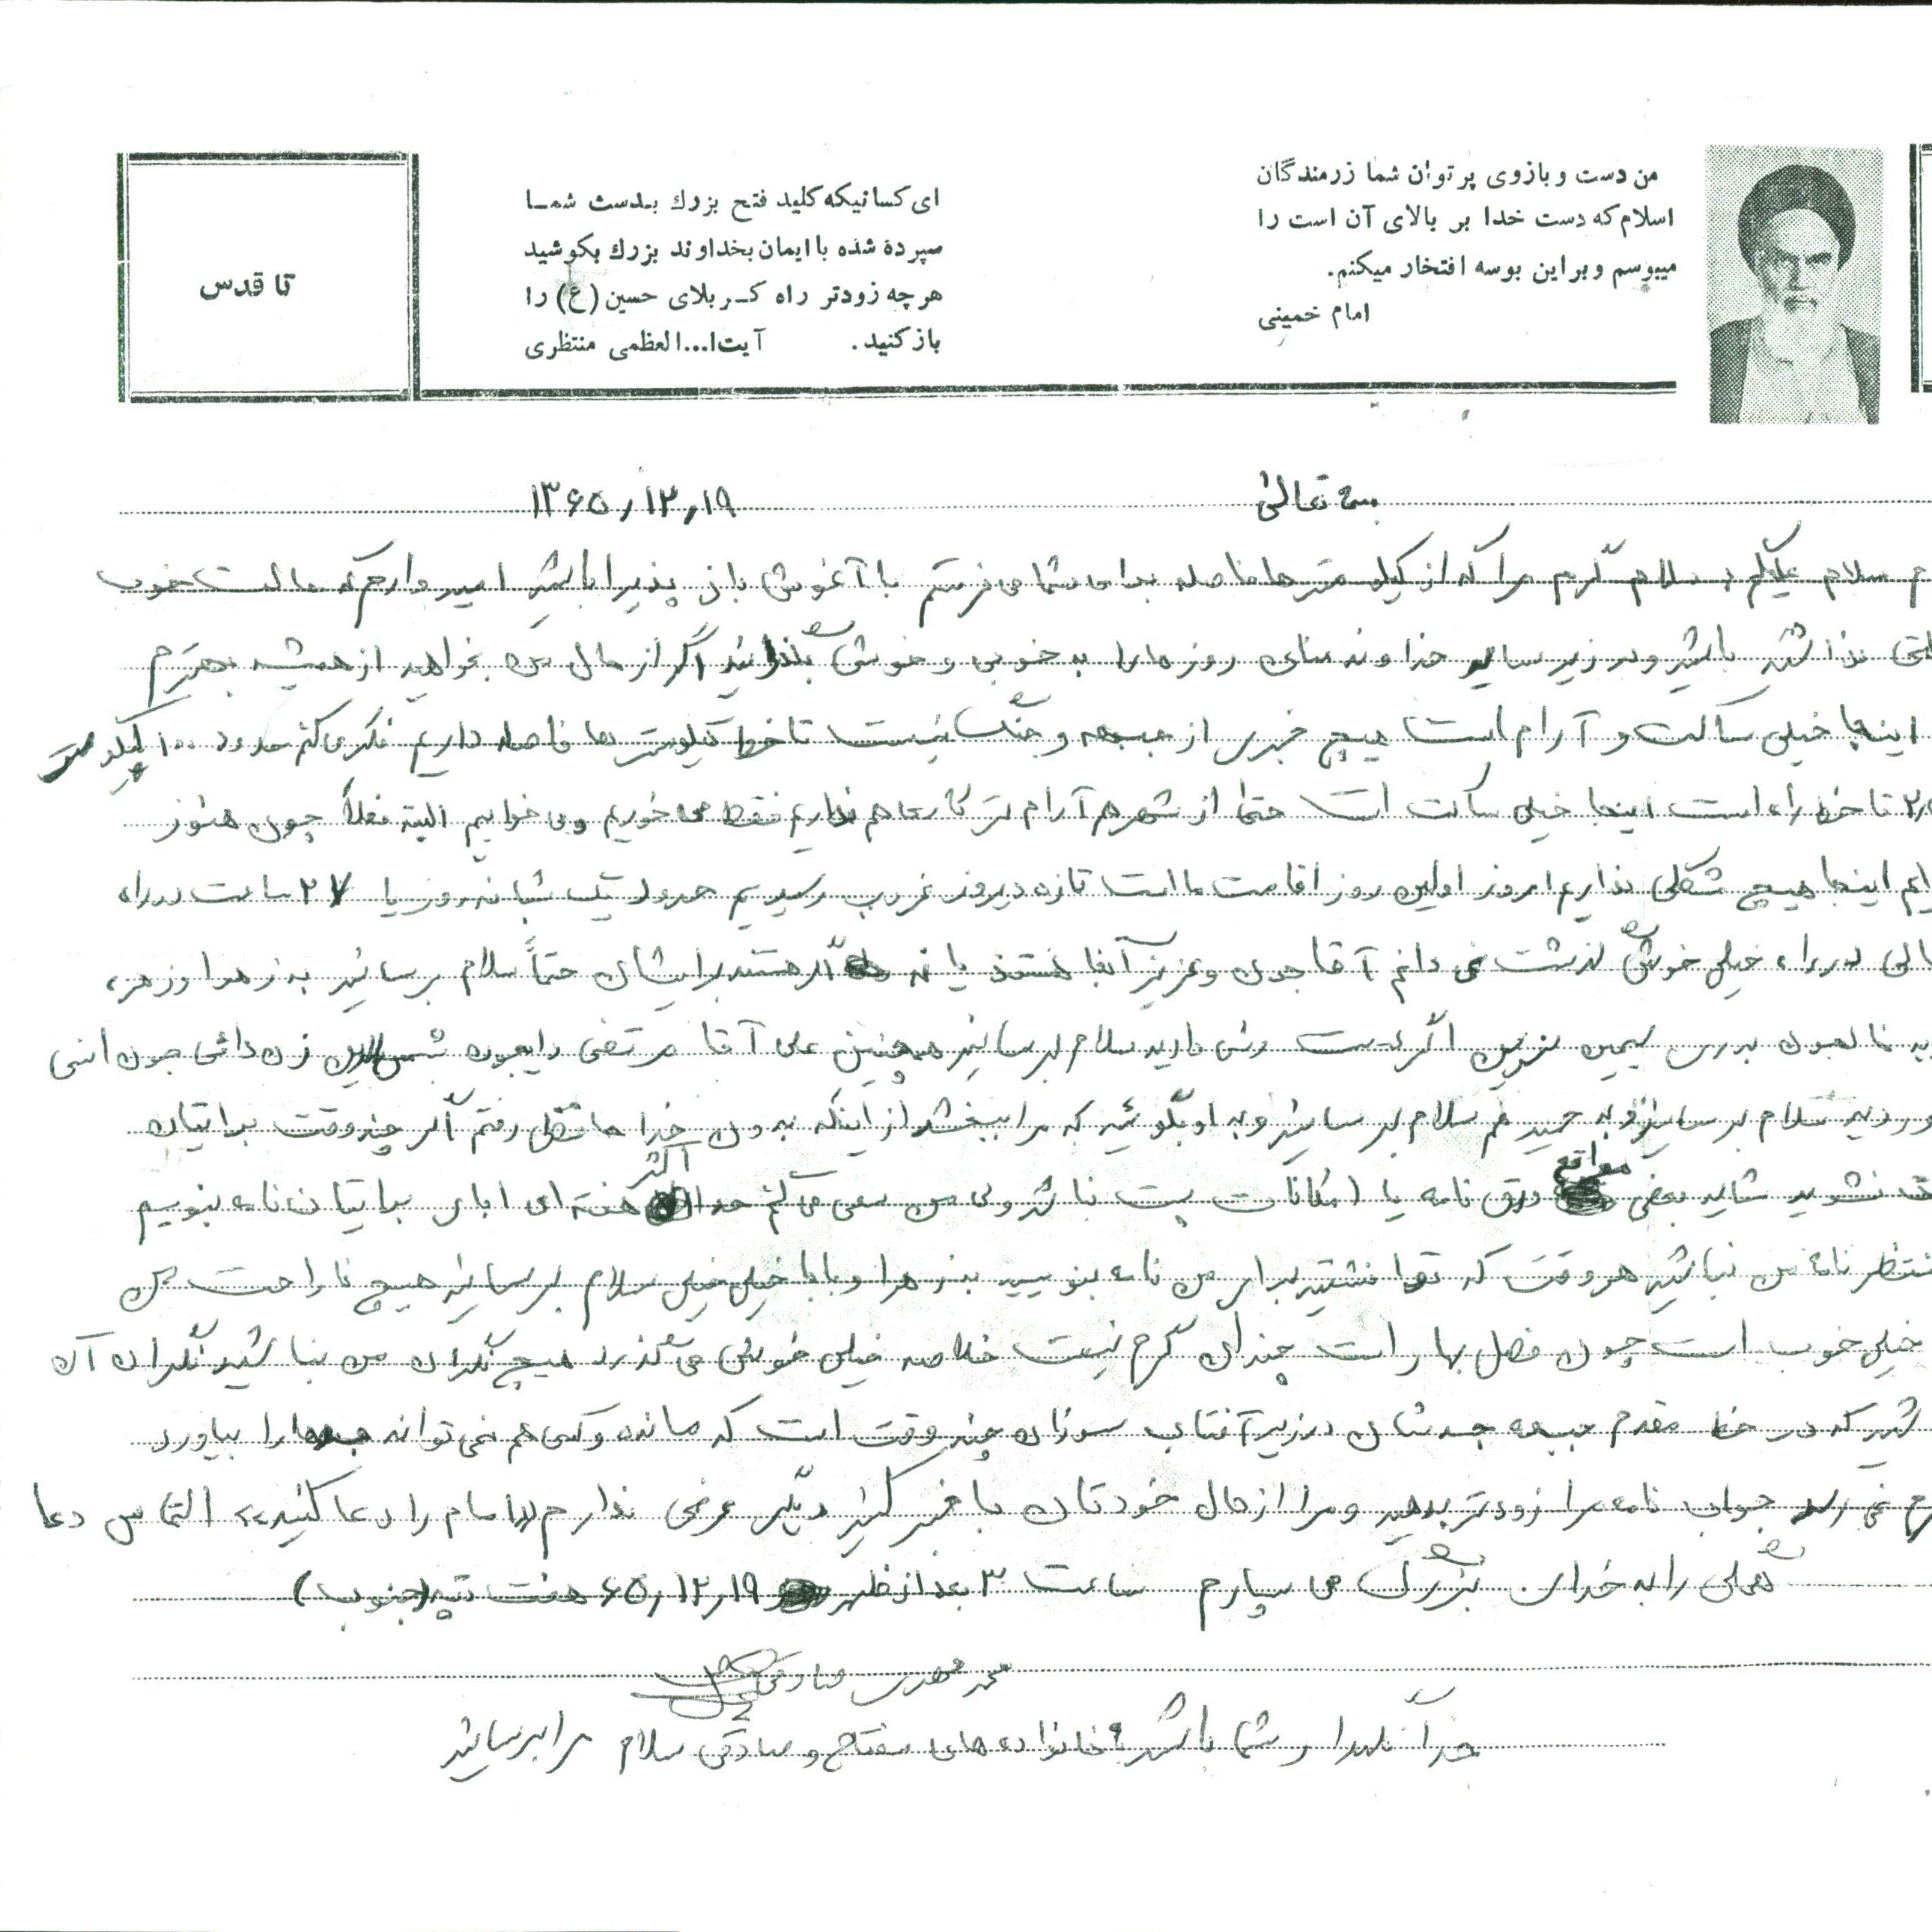 من دست و بازوی پر توان شما زرمندگان
اسلام که دست خدا بر بالای آن است را
میبوسم و بر این بوسه افتخار میکنم.
امام خمینی
ای کسانیکه کلید فتح بزرك بدست شما
سپرده شده با ایمان بخداوند بزرك بکوشید
هر چه زودتر راه کربلای حسین (ع) را
باز کنید. آیت‌ا...العظمی منتظری
تا قدس
بسمه تعالی ۱۳۶۵٫۱۲٫۱۹
سلام علیکم سلام گرم مرا که از کیلومترها فاصله برای شما می فرستم با آغوش باز پذیرا باشید امیدوارم که حالت خوب
نداشته باشید و در زیر سایه خداوند منان روزها را به خوبی و خوشی بگذرانید اگر از حال من بخواهید از همیشه بهترم
اینجا خیلی ساکت و آرام است هیچ خبری از جبهه و جنگ نیست تا خط کیلومترها فاصله داریم فکر می کنم حدود ۱۰۰ کیلومتر
تا خط راه است اینجا خیلی ساکت است حتی از شهر هم آرام تر کاری هم نداریم فقط می خوریم و می خوابیم البته فعلاً چون هنوز
ایم اینجا هیچ مشکلی نداریم امروز اولین روز اقامت ما است تازه دیروز غروب رسیدیم حدود یک شبانه روز یا ۲۷ ساعت در راه
در راه خیلی خوش گذشت نمی دانم آقا جون و عزیز آنجا هستند یا نه اگر هستند برایشان حتماً سلام برسانید به زهرا و زهره
به خاله جون پری سیمین نسرین اگر دست رسی دارید سلام برسانید همچنین علی آقا مرتضی دایی جون زن دائی جون انسی
سلام برسانید و به حمید هم سلام برسانید و به او بگوئید که مرا ببخشد از اینکه بدون خدا حافظی رفتم اگر چند وقت برایتان
نشوید شاید بعضی مواقع ورق نامه یا امکانات پست نباشد ولی من سعی می کنم حداکثر هفته ای یکبار برایتان نامه بنویسم
منتظر نامه من نباشید هر وقت که توانستید برای من نامه بنویسید به زهرا و بابا خیلی خیلی سلام برسانید هیچ ناراحت من
خیلی خوب است چون فصل بهار است چندان گرم نیست خلاصه خیلی خوش می گذرد هیچ نگران من نباشید نگران آن
که در خط مقدم جبهه جسدشان در زیر آفتاب سوزان چند وقت است که مانده و کسی هم نمی تواند جسدها را بیاورد
نمی رسد جواب نامه مرا زودتر بدهید و مرا از حال خودتان با خبر کنید دیگر عرضی ندارم امام را دعا کنید التماس دعا
همگی را به خدای بزرگ می سپارم ساعت ۳ بعد از ظهر ۶۵٫۱۲٫۱۹ هفت تپه (جنوب)
محمد مهدی صادقی
خدا نگهدار شما باشد به خانواده های مفتاح و صادقی سلام مرا برسانید